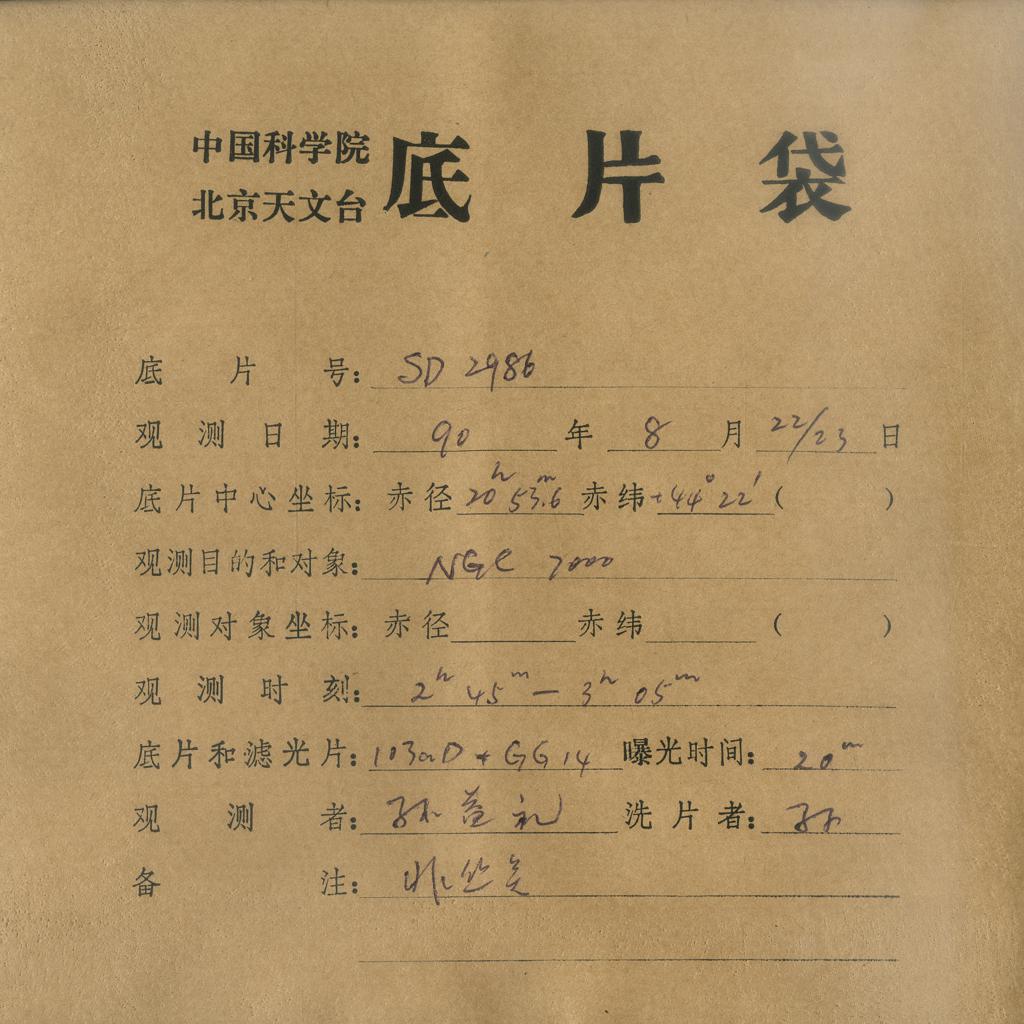 中国科学院
北京天文台
底片袋
底片号: SD 2986
观测日期: 90 年 8 月 22/23 日
底片中心坐标: 赤径 20ʰ 53ᵐ.6 赤纬 +44° 22′ ( )
观测目的和对象: NGC 7000
观测对象坐标: 赤径 赤纬 ( )
观测时刻: 2ʰ 45ᵐ — 3ʰ 05ᵐ
底片和滤光片: 103aD + GG 14 曝光时间: 20ᵐ
观测者: 孙益礼 洗片者: 孙
备注: